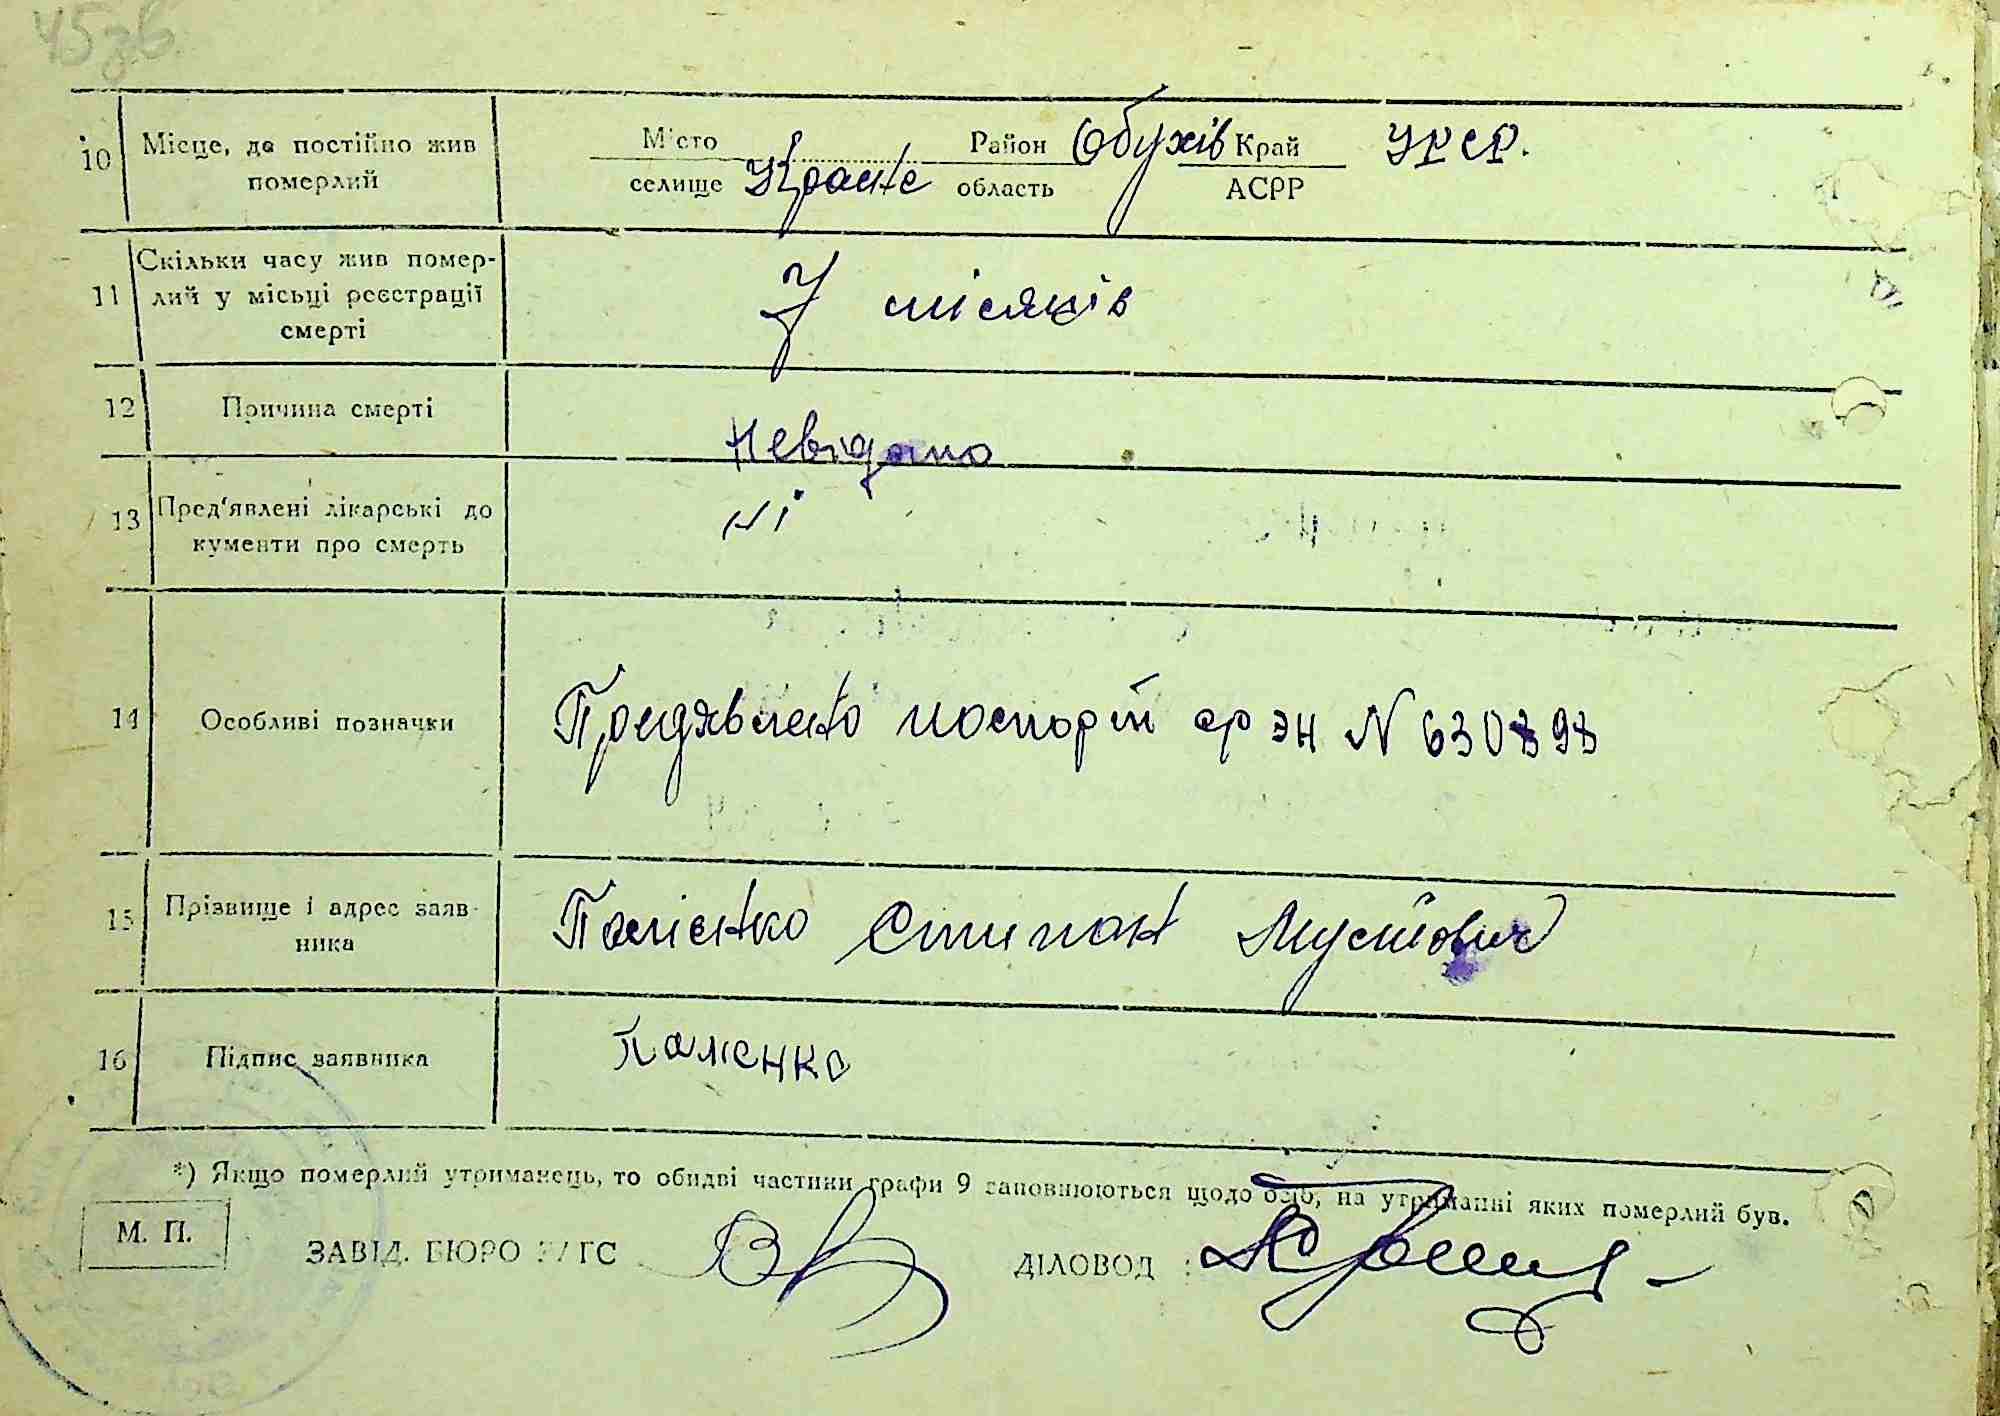 45зв
10 Місце, де постійно жив померлий Місто селище Красне Район область Обухів Край АСРР УРСР.
11 Скільки часу жив помер-
лий у місьці реєстрації
смерті 7 місяців
12 Причина смерті Невідомо
13 Пред'явлені лікарські до
кументи про смерть Ні
14 Особливі позначки Предявлено паспорт ср ЭН N 630898
15 Прізвище і адрес заяв-
ника Пастенко Степан Мусійович
16 Підпис заявника
*) Якщо померлий утриманець, то обидві частини графи 9 заповнюються щодо осіб, на утриманні яких померлий був.
М. П.
ЗАВІД. БЮРО ЗАГС ДІЛОВОД